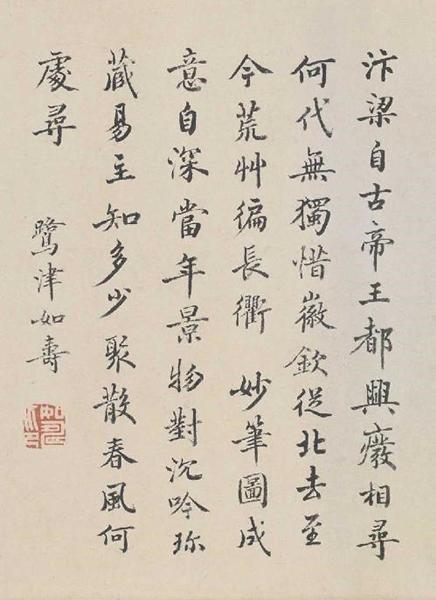 汴梁自古帝王都興廢相尋
何代無獨惜徽欽從北去至
今荒艸徧長衢 妙筆圖成
意自深當年景物對沉吟珎
藏易主知多少聚散春風何
處尋
鷺津如壽